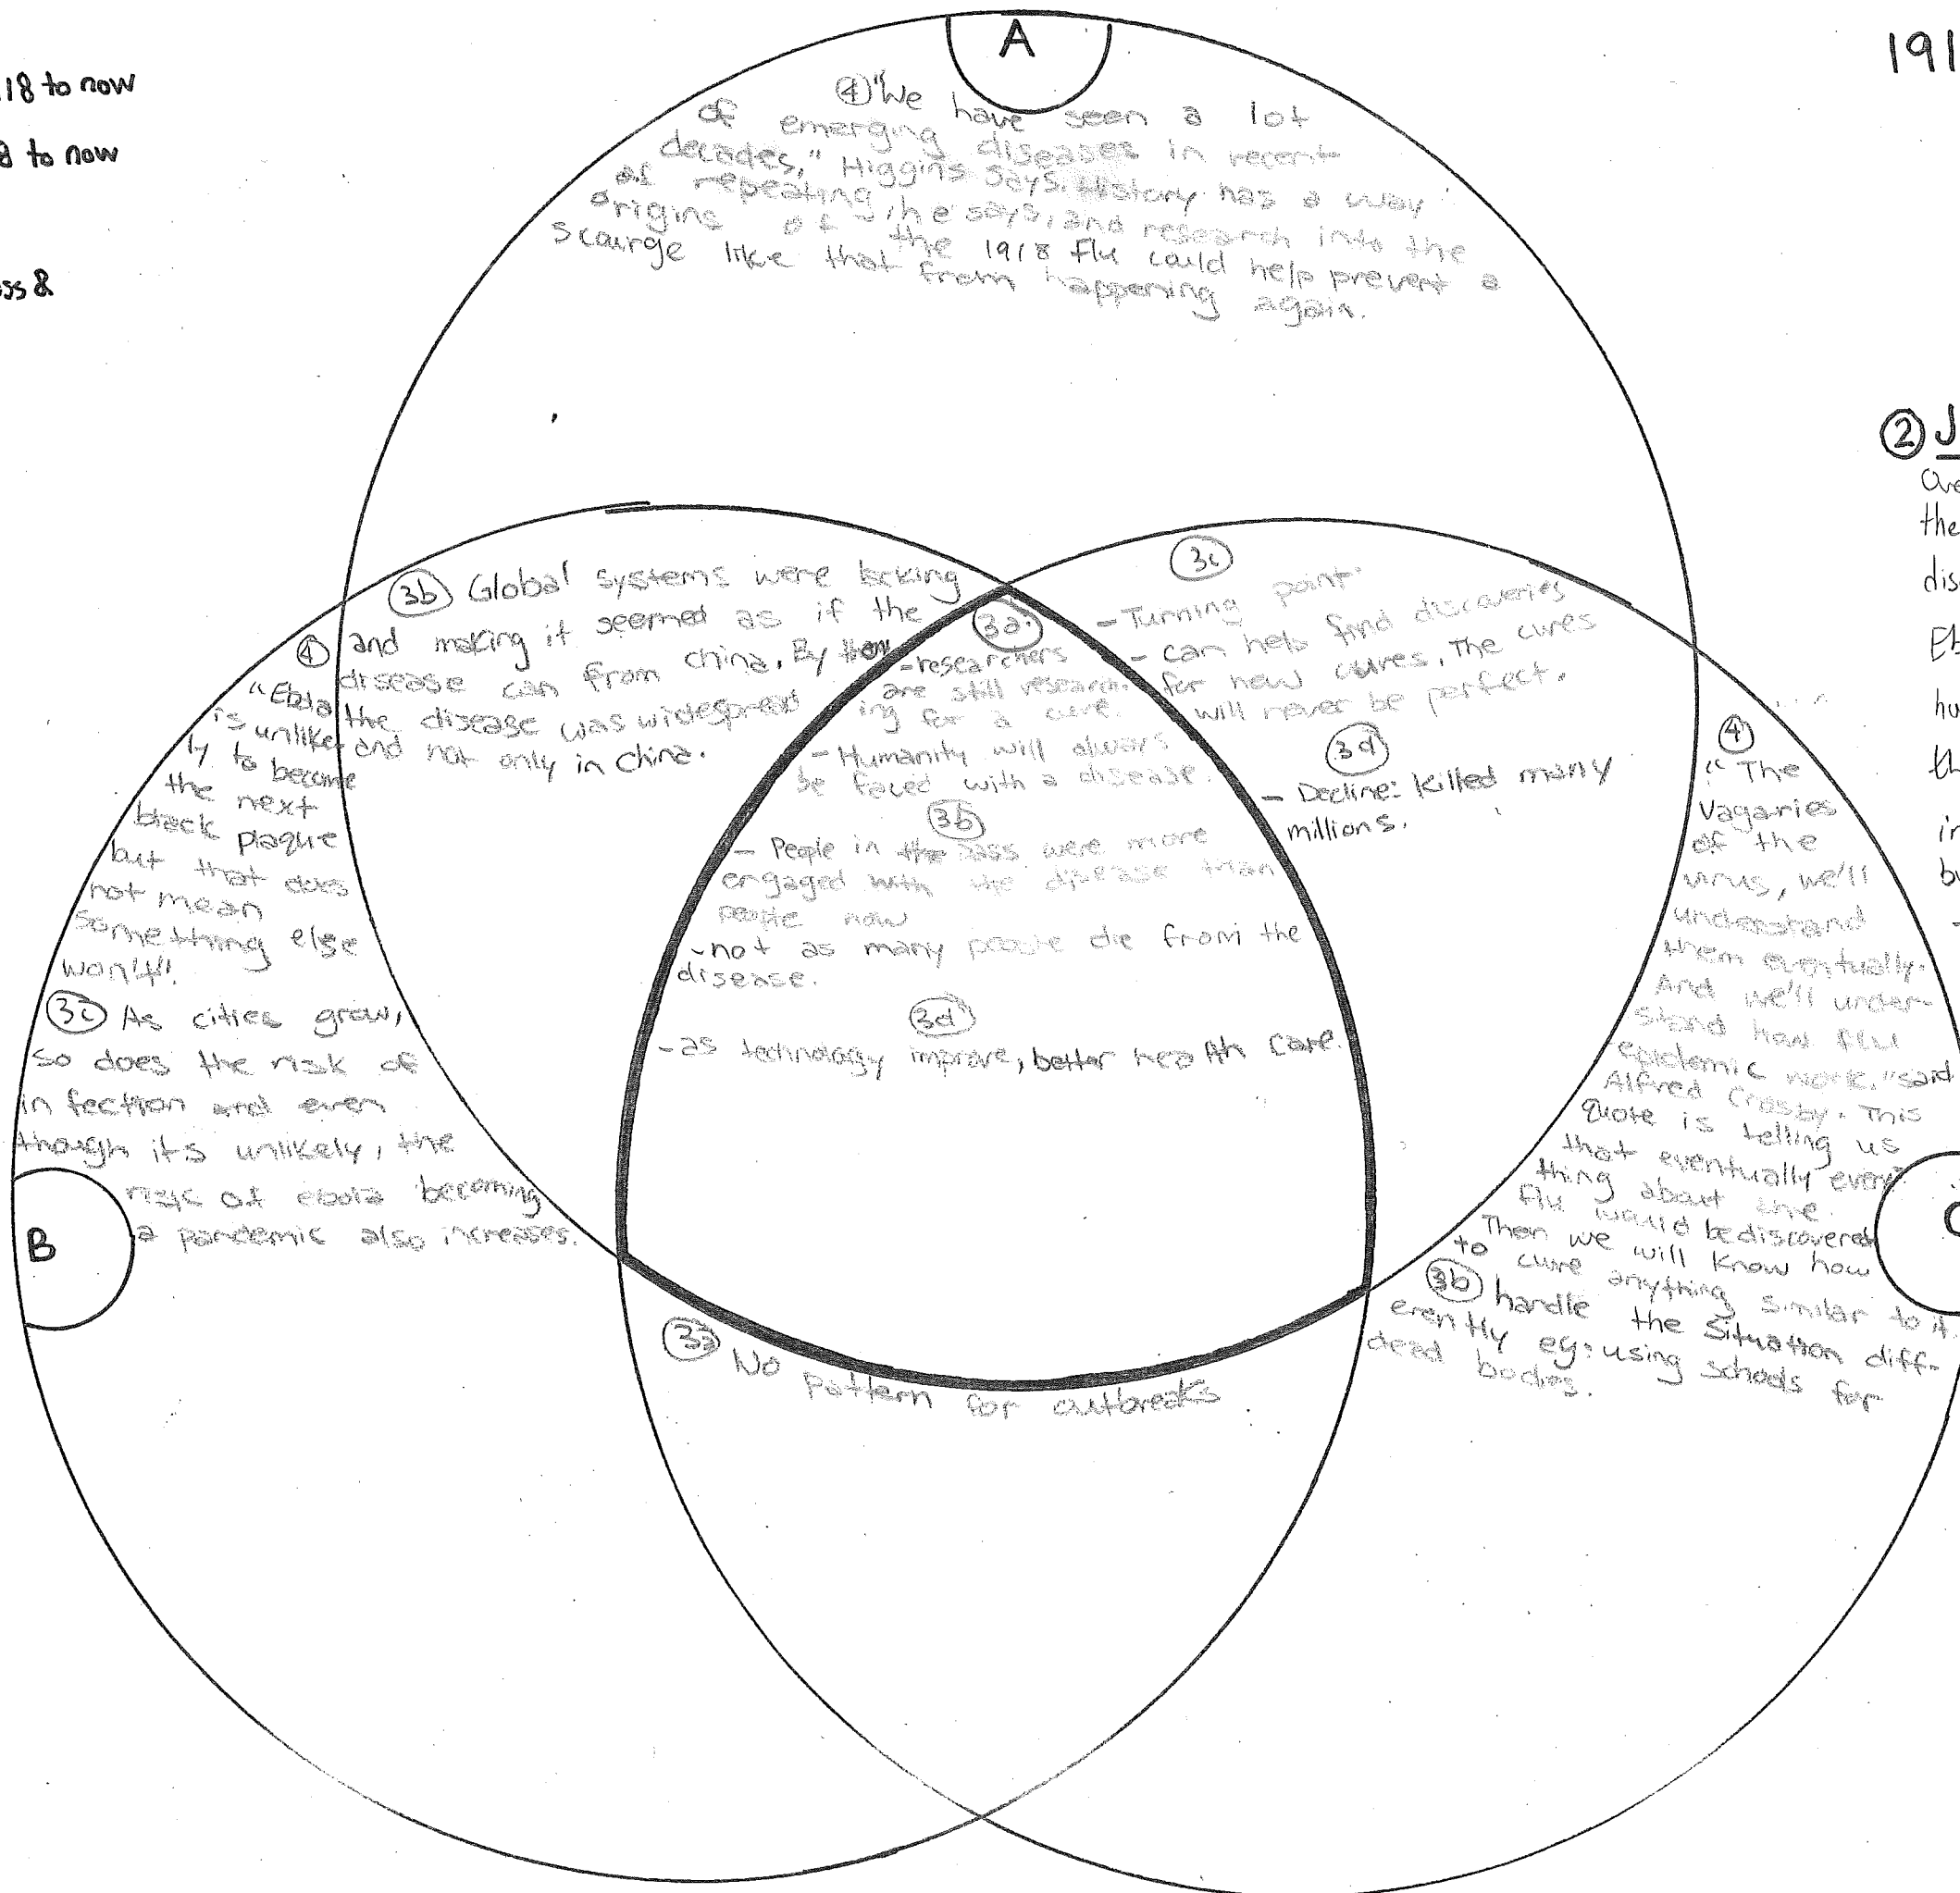 18 to now
8 to now
ss &
191
A
④ "We have seen a lot
of emerging diseases in recent
decades," Higgins says. History has a way
of repeating, he says, and research into the
origins of the 1918 flu could help prevent a
scourge like that from happening again.
② J
the
dis
hu
th
in
bu
3b Global systems were lacking
and making it seemed as if the
disease can from china. By then
the disease was widespread
and not only in china.
④
"Ebola
is unlike-
ly to become
the next
black plaque
but that does
not mean
something else
won't".
3c As cities grow,
so does the risk of
infection and even
though its unlikely, the
risk of ebola becoming
a pandemic also increases.
B
3a
-researchers
are still research-
ing for a cure.
- Humanity will always
be faced with a disease.
3b
- People in the pass were more
engaged with the disease than
people now
-not as many people die from the
disease.
3d
-as technology improve, better health care.
3c
- Turning point
- can help find discoveries
for new cures, The cures
will never be perfect.
3d
- Decline: killed many
millions.
④
"The
vagaries
of the
virus, we'll
understand
them eventually.
And we'll under-
stand how flu
epidemic work." said
Alfred Crosby. This
quote is telling us
that eventually every
thing about the
flu would be discovered
Then we will know how
to cure anything similar to it.
3b handle the situation diff-
erently eg: using schools for
dead bodies.
C
3a No
pattern for outbreaks